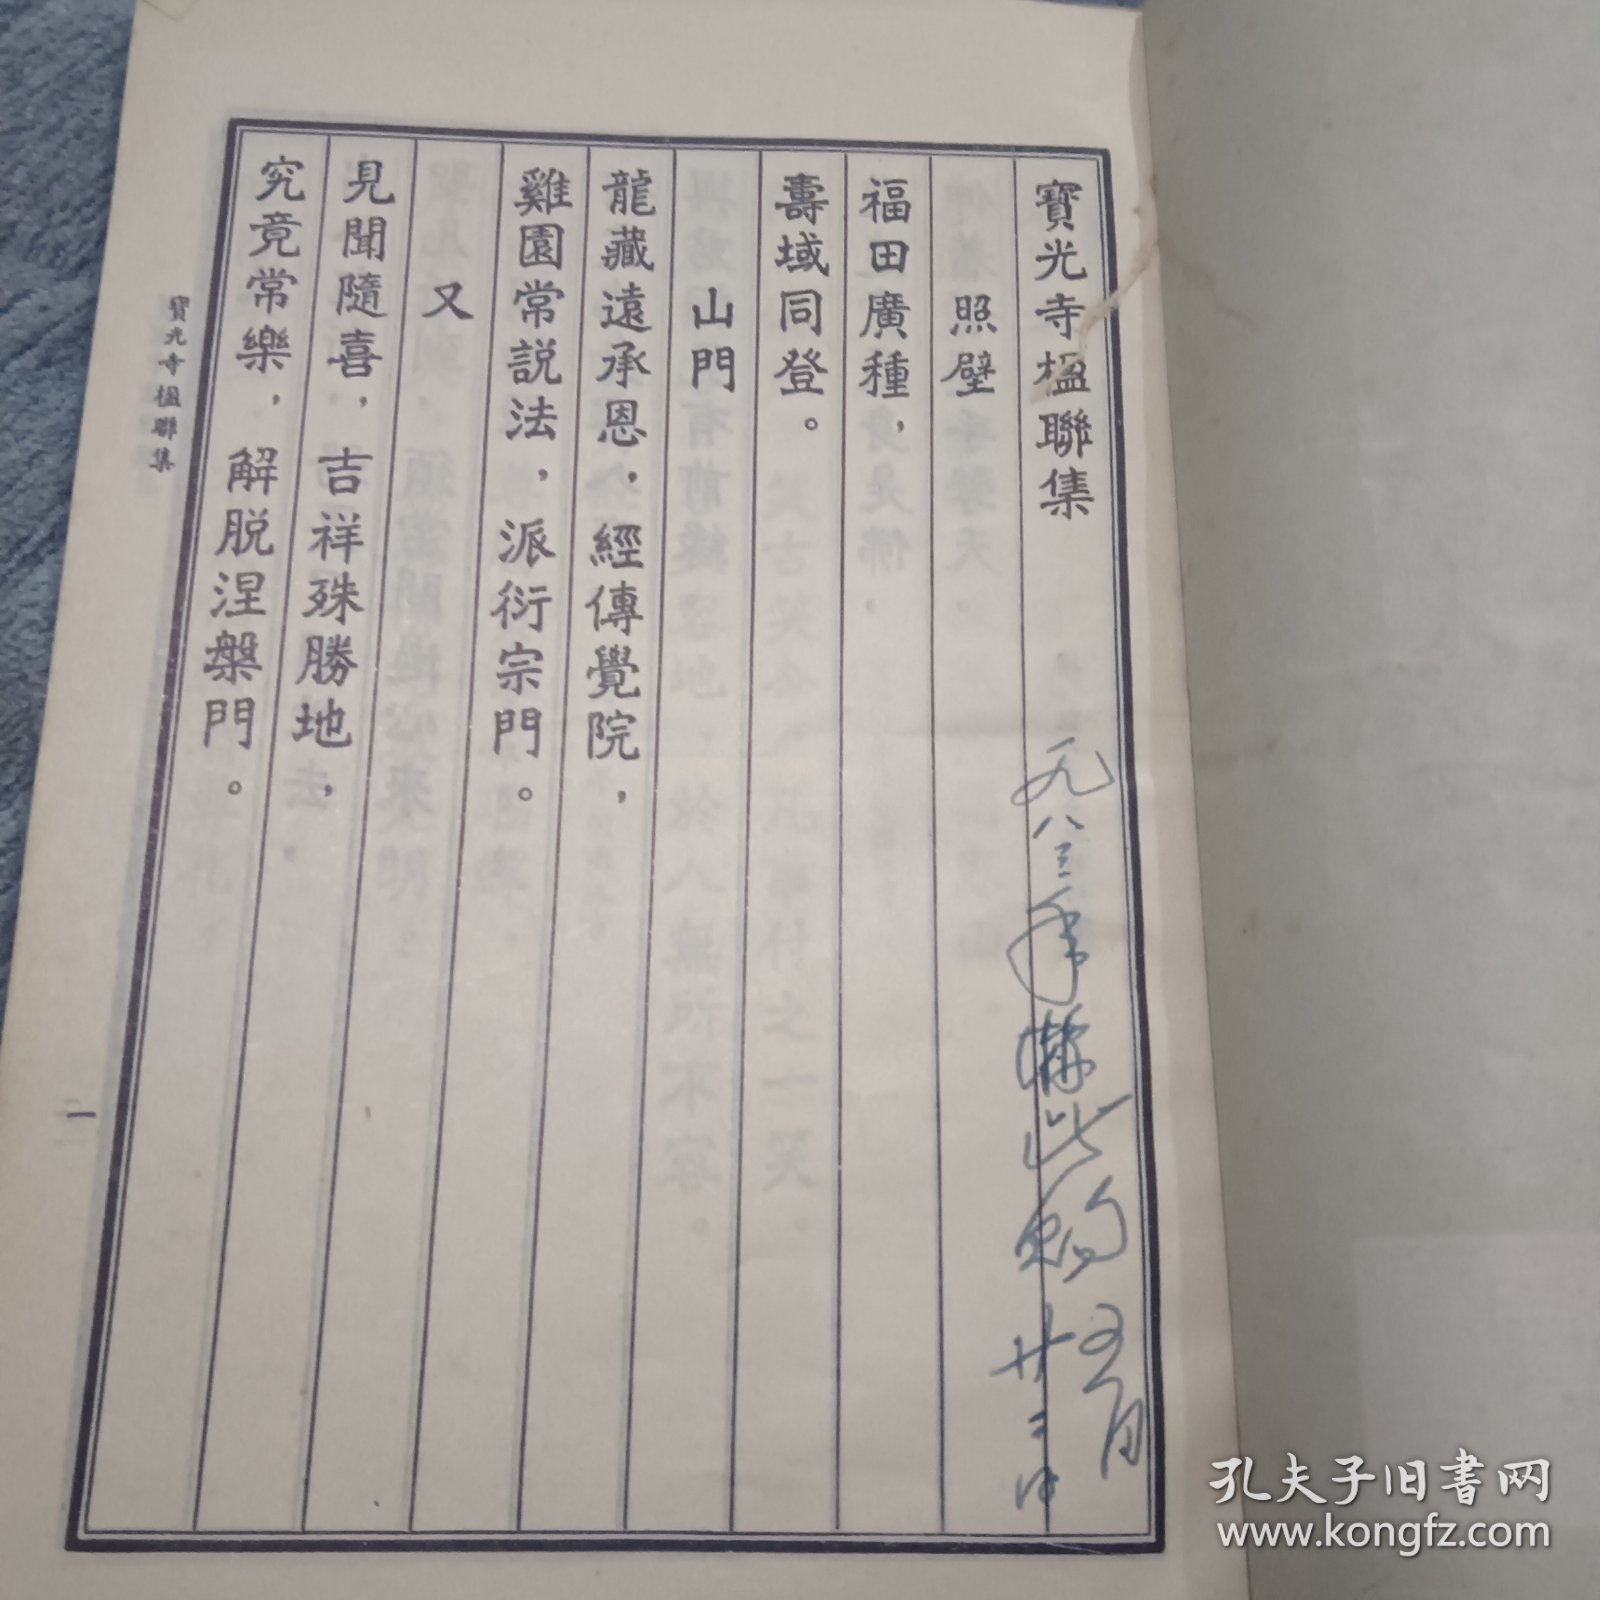 寶光寺楹聯集
照壁
福田廣種，
壽域同登。
山門
龍藏遠承恩，經傳覺院，
雞園常説法，派衍宗門。
又
見聞隨喜，吉祥殊勝地，
究竟常樂，解脱涅槃門。
寶光寺楹聯集
一
一九八三年購此
五月
廿三日
孔夫子旧书网
www.kongfz.com